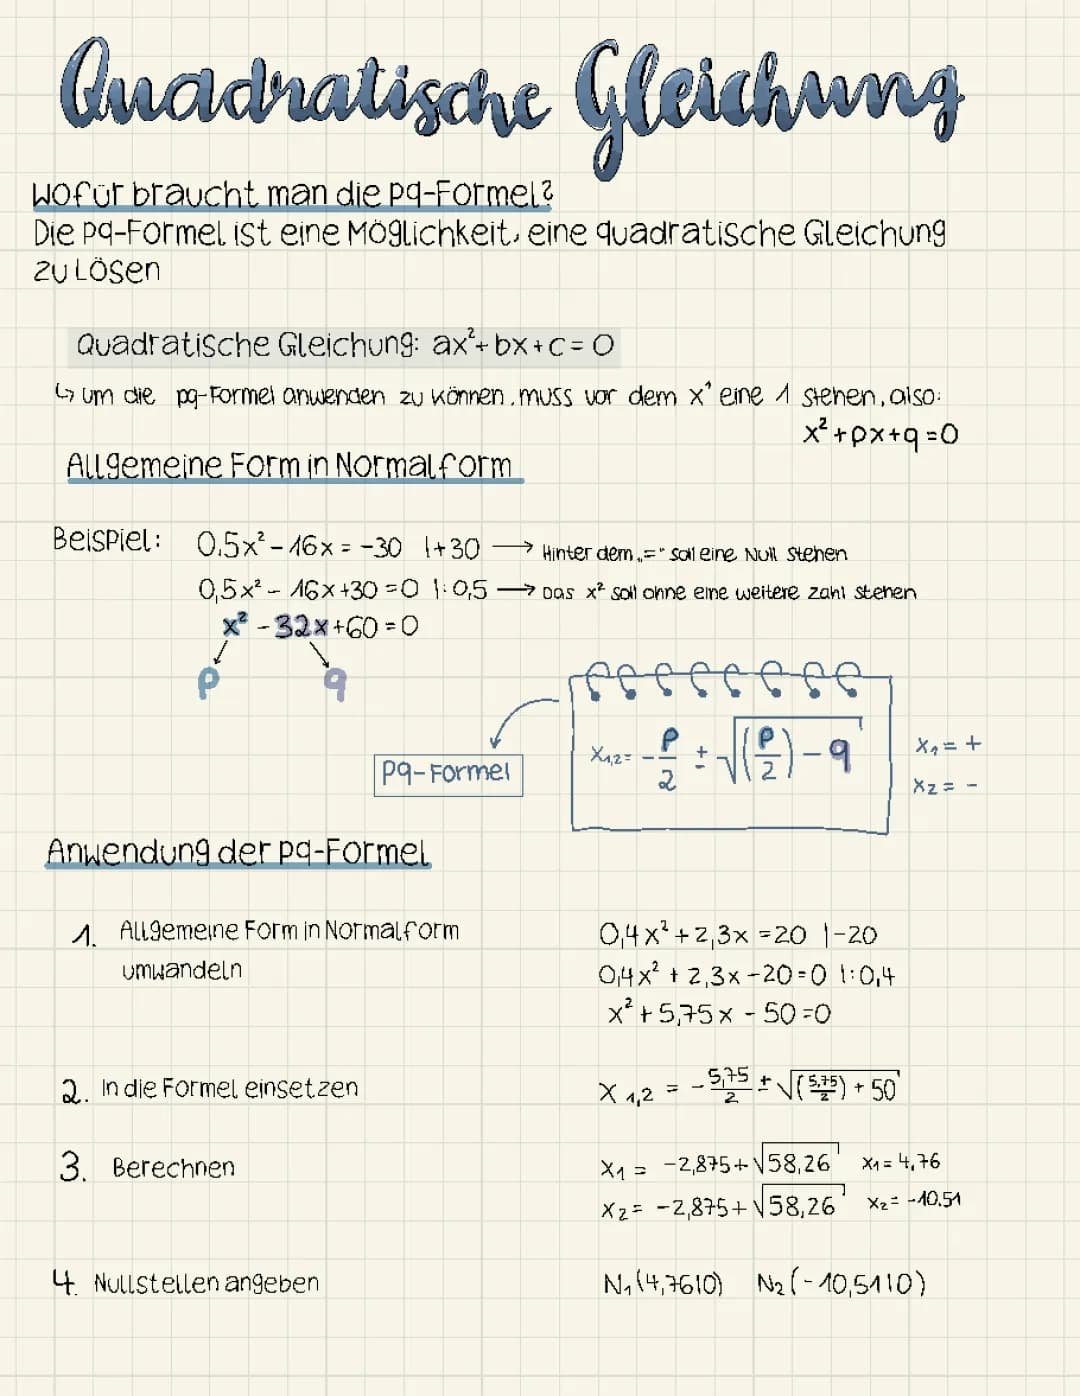 Quadratische Gleichung
Wofür braucht man die pq-Formel?
Die pq-Formel ist eine Möglichkeit, eine quadratische Gleichung
zu Lösen
Quadratische Gleichung: ax²+bx+c=0
↳ um die pq-Formel anwenden zu können, muss vor dem x² eine 1 stehen, also:
x²+px+q=0
Allgemeine Form in Normalform
Beispiel: 0,5x²-16x = -30 |+30 → Hinter dem „=" soll eine Null stehen
0,5x² - 16x+30=0 |:0,5 → Das x² soll ohne eine weitere Zahl stehen
x² - 32x+60=0
p q
x1,2= - p/2 ± √((p/2) - q) x1= +
pq-Formel x2= -
Anwendung der pq-Formel
1. Allgemeine Form in Normalform 0,4x²+2,3x =20 |-20
umwandeln 0,4x² + 2,3x-20=0 |:0,4
x²+5,75x - 50=0
2. In die Formel einsetzen x 1,2 = - 5,75/2 ± √((5,75/2) + 50)
3. Berechnen x1 = -2,875+√58,26 x1= 4,76
x2= -2,875+√58,26 x2= -10,51
4. Nullstellen angeben N1(4,76|0) N2(-10,51|0)